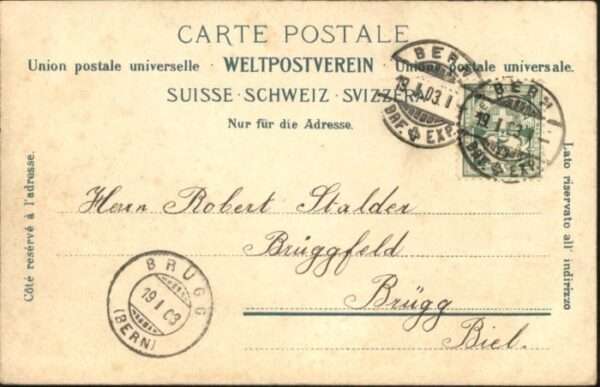 CARTE POSTALE
Union postale universelle - WELTPOSTVEREIN - Unione postale universale.
SUISSE · SCHWEIZ · SVIZZERA
Nur für die Adresse.
Côté reservé à l'adresse.
Lato riservato all' indirizzo
BERN
19.I.03.I
BRF. EXP.
BERN
19.I.03
BRF. EXP.
Herrn Robert Stalder
Brüggfeld
Brügg
Biel.
BRÜGG
19 I 03
(BERN)